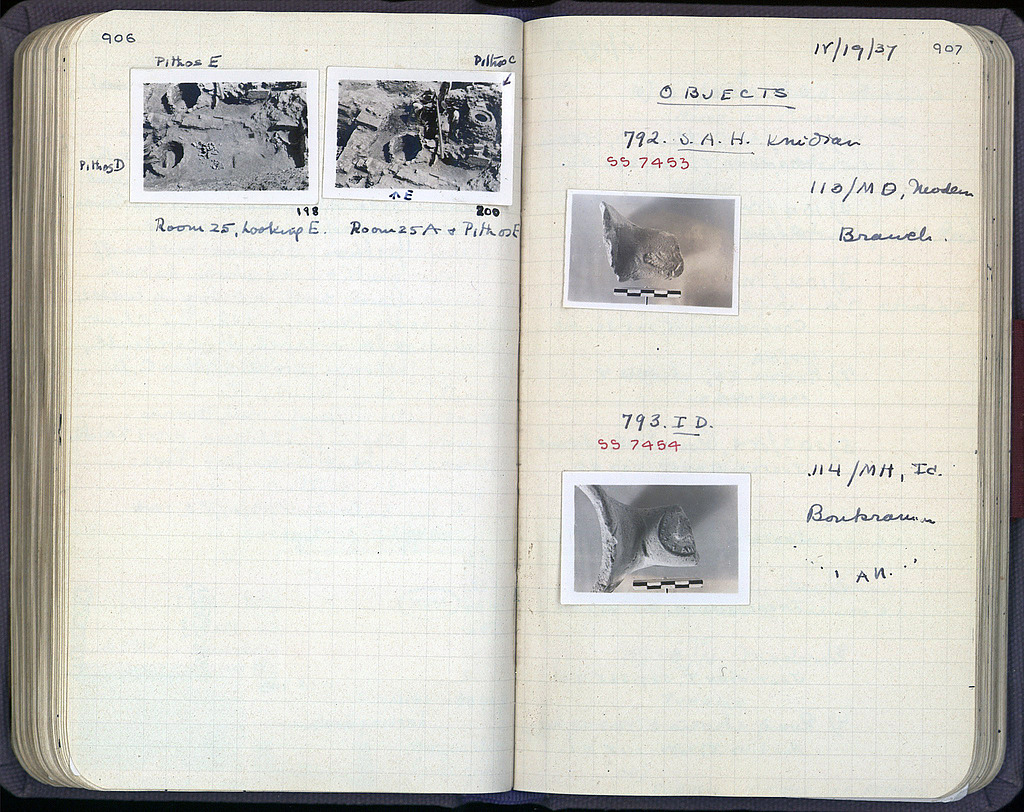 906
Pithos E
Pithos C
Pithos D
↑E
198
200
Room 25, Looking E.
Room 25 A + Pithos E
IV/19/37
907
OBJECTS
792. S.A.H. Knidian
SS 7453
110/ΜΘ, Modern
Branch.
793. I D.
SS 7454
114/MH, Id.
Boukranion